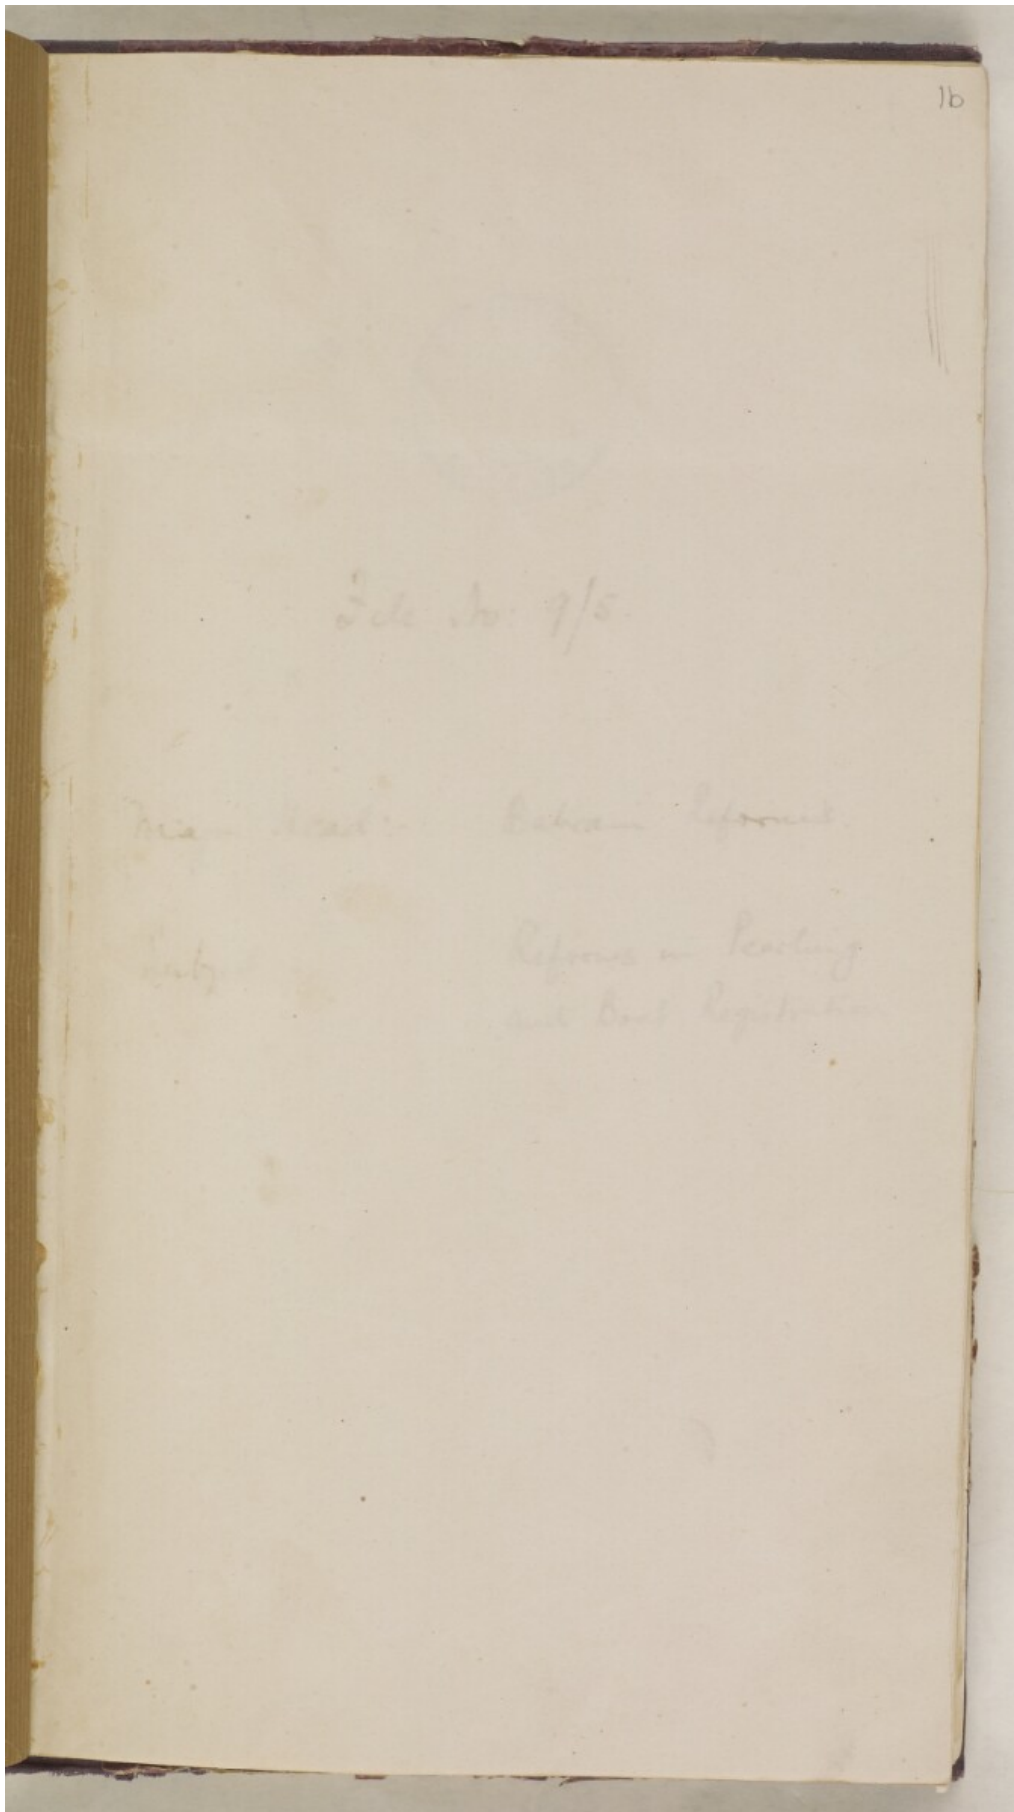 1b
File No: 9/5.
Main Head:- Bahrain Reforms
Subj Reforms in Pearling
and Boat Registration